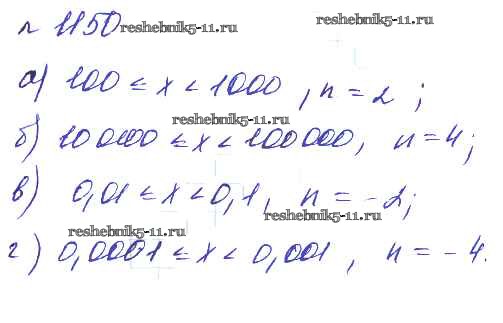 № 1150 reshebnik5-11.ru
а) 100 ≤ x < 1000, n = 2;
reshebnik5-11.ru
б) 10000 ≤ x < 100000, n = 4;
в) 0,01 ≤ x < 0,1, n = -2;
reshebnik5-11.ru
reshebnik5-11.ru
г) 0,0001 ≤ x < 0,001, n = -4.